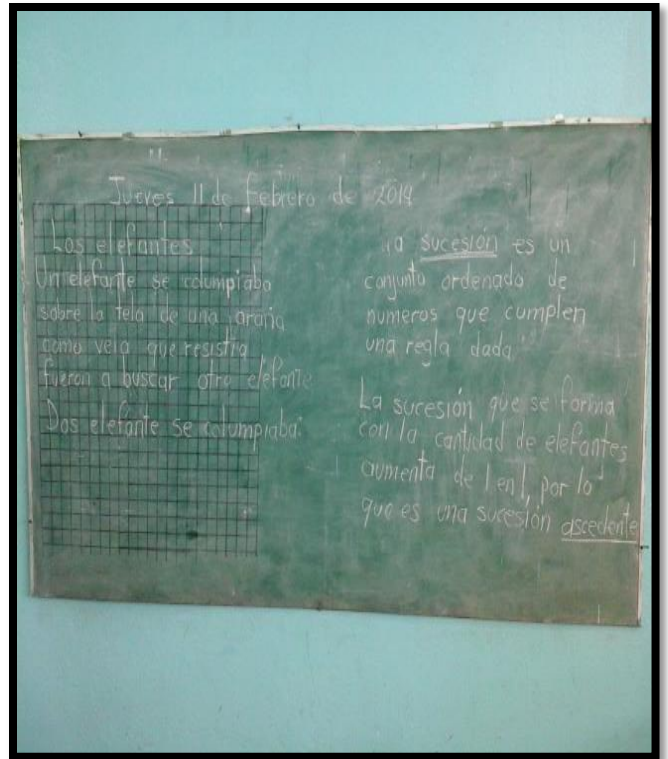 Jueves 11 de febrero de 2014
Los elefantes
Un elefante se columpiaba
sobre la tela de una araña
como veía que resistía
fueron a buscar otro elefante
Dos elefante se columpiaba.
La sucesión es un
conjunto ordenado de
numeros que cumplen
una regla dada.
La sucesión que se forma
con la cantidad de elefantes
aumenta de 1 en 1, por lo
que es una sucesión ascedente